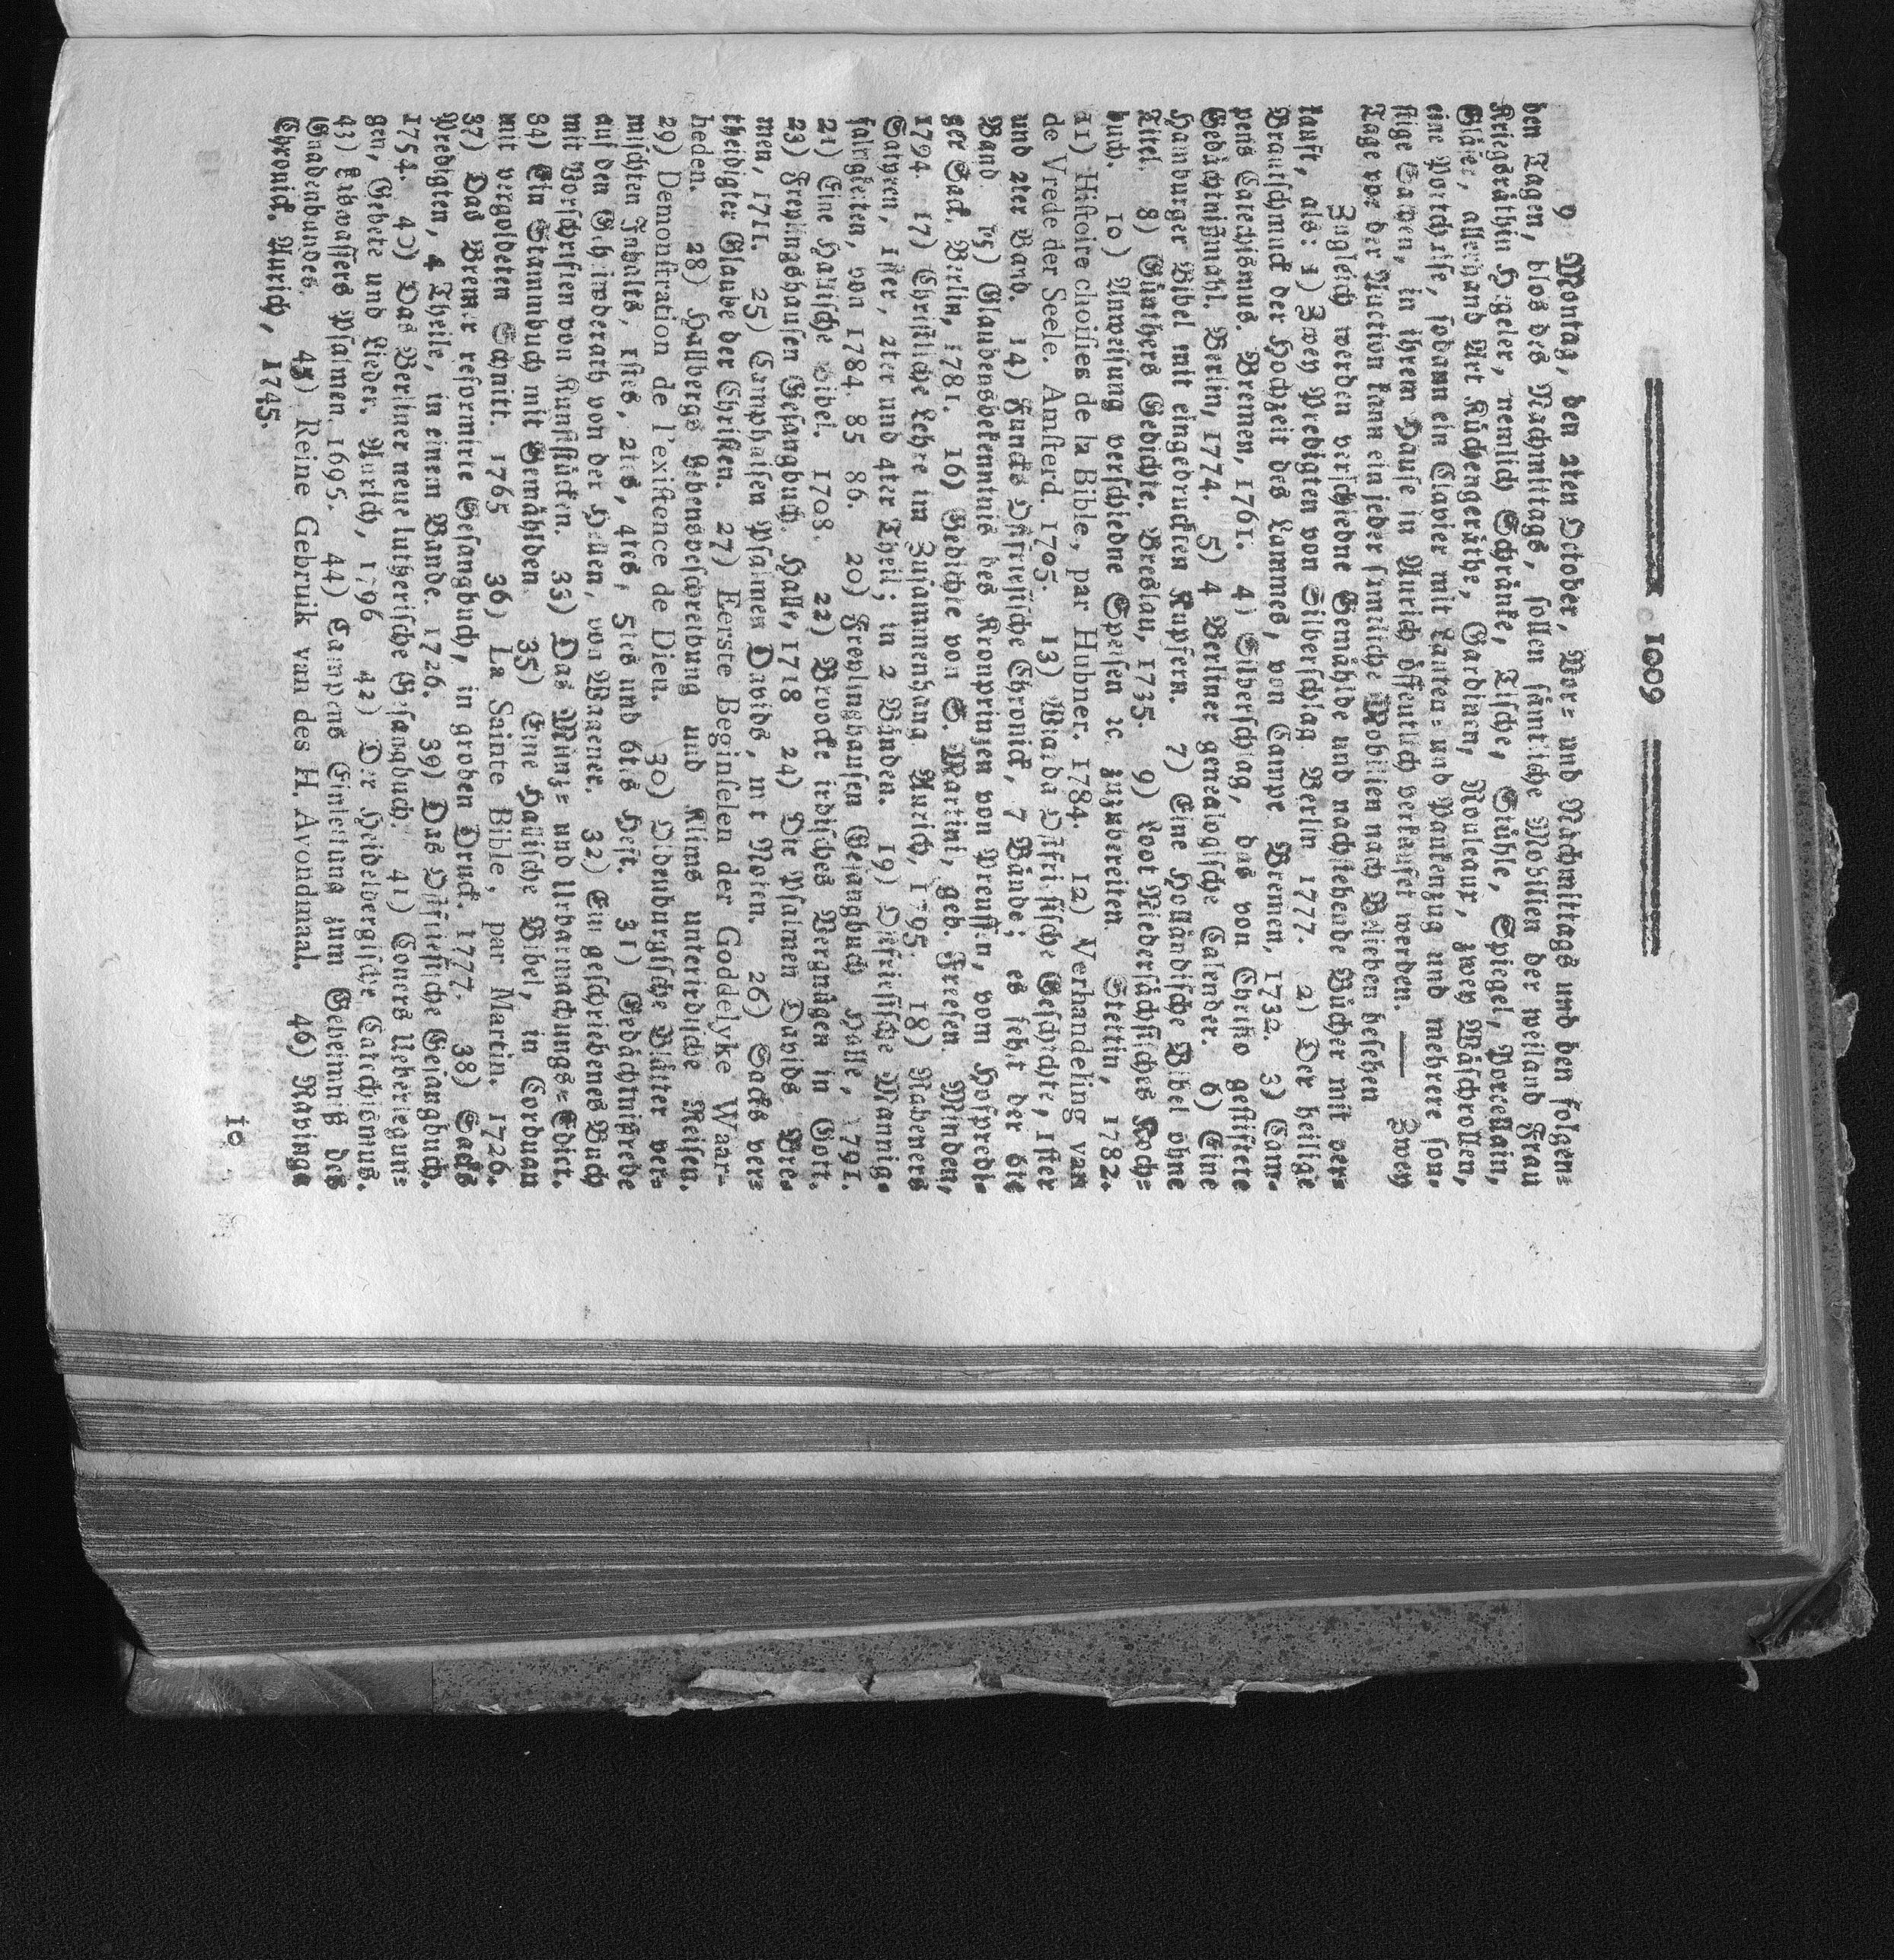 1009
9. Montag, den 2ten October, Vor= und Nachmittags und den folgen=
den Tagen, blos des Nachmittags, sollen sämtliche Mobilien der weiland Frau
Kriegsräthin Hegeler, nemlich Schränke, Tische, Stühle, Spiegel, Porcellain,
Gläser, allerhand Art Küchengeräthe, Gardinen, Rouleaux, zwey Waschrollen,
eine Portchaise, sodann ein Clavier mit Lauten= und Paukenzug und mehrere son=
stige Sachen, in ihrem Hause in Aurich öffentlich verkaufet werden. — Zwey
Tage vor der Auction kann ein jeder sämtliche Mobilien nach Belieben besehen.
Zugleich werden verschiedne Gemählde und nachstehende Bücher mit ver=
kauft, als: 1) Zwey Predigten von Silberschlag. Berlin 1777. 2) Der heilige
Brautschmuck der Hochzeit des Lammes, von Campe Bremen, 1732. 3) Cam=
pens Catechismus. Bremen, 1761. 4) Silberschlag, das von Christo gestiftete
Gedächtnißmahl. Berlin, 1774. 5) 4 Berliner genealogische Calender. 6) Eine
Hamburger Bibel mit eingedruckten Kupfern. 7) Eine Holländische Bibel ohne
Titel. 8) Günthers Gedichte. Breslau, 1735. 9) Loot Niedersächsisches Koch=
buch. 10) Anweisung verschiedne Speisen ic. zuzubereiten. Stettin, 1782.
11) Histoire choisies de la Bible, par Hubner. 1784. 12) Verhandeling van
de Vrede der Seele. Amsterd. 1705. 13) Wiarda Ostfriesische Geschichte, 1ster
und 2ter Band. 14) Funcks Ostfriesische Chronick, 7 Bände; es fehlt der 6te
Band. 15) Glaubensbekenntnis des Kronprinzen von Preussen, vom Hofpredi=
ger Sack. Berlin, 1781. 16) Gedichte von S. Martini, geb. Freesen. Minden,
1794 17) Christliche Lehre im Zusammenhang Aurich, 1795. 18) Rabeners
Satyren, 1ster, 2ter und 4ter Theil; in 2 Bänden. 19) Ostfriesische Mannig=
faltigkeiten, von 1784. 85 86. 20) Freylinghausen Gesangbuch Halle, 1791.
21) Eine Hallische Bibel. 1708. 22) Brocks irdisches Vergnügen in Gott.
23) Freylingshausen Gesangbuch. Halle, 1718 24) Die Psalmen Davids Bre=
men, 1711. 25) Camphuisen Psalmen Davids, mit Noten. 26) Sacks ver=
theidigter Glaube der Christen. 27) Eerste Beginselen der Goddelyke Waar-
heden. 28) Hallbergs Lebensbeschreibung und Klims unterirdische Reisen.
29) Demonstration de l'existence de Dieu. 30) Oldenburgische Blätter ver=
mischten Inhales, 1stes, 2tes, 4tes, 5tes und 6tes Heft. 31) Gedächtnißrede
auf den Geheimderath von der Hellen, von Wagener. 32) Ein geschriebenes Buch
mit Vorschriften von Kunststücken. 33) Das Münz= und Urbarmachungs=Edict.
34) Ein Stammbuch mit Gemählden. 35) Eine Hallische Bibel, in Corduan
mit vergoldeten Schnitt. 1765 36) La Sainte Bible, par Martin. 1726.
37) Das Bremer reformirte Gesangbuch, in groben Druck. 1777. 38) Sacks
Predigten, 4 Theile, in einem Bande. 1726. 39) Das Ostfriesische Gesangbuch.
1754. 40) Das Berliner neue lutherische Gesangbuch. 41) Coners Ueberlegun=
gen, Gebete und Lieder. Aurich, 1796 42) Der Heidelbergische Catechismus.
43) Lobwassers Psalmen. 1695. 44) Campens Einleitung zum Geheimniß des
Gnadenbundes. 45) Reine Gebruik van des H. Avondmaal. 46) Ravings
Chronick. Aurich, 1745.
10